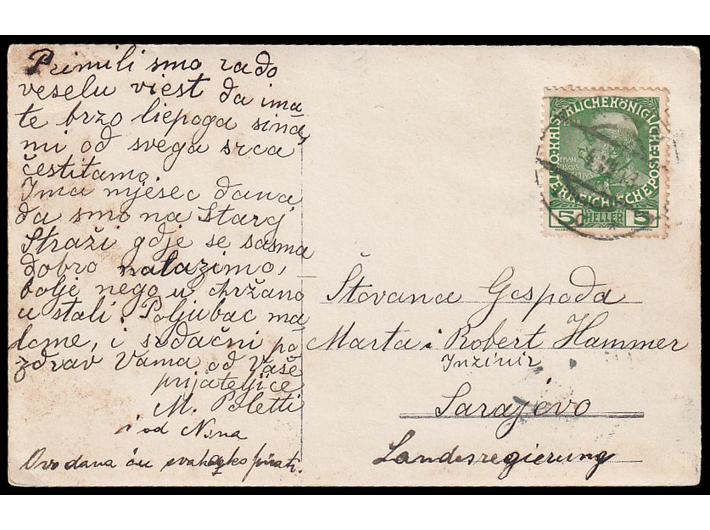 Primili smo rado
veselu viest da ima
te brzo liepoga sina,
mi od svega srca
čestitamo.
Ima mjesec dana
da smo na Staroj
Straži gdje se sasma
dobro nalazimo,
bolje nego u
u stali. Poljubac ma
lome, i srdačni po
zdrav Vama od Vaše
prijateljice
M. Poletti
i od Nina
Ovo dana ću
KAISERLICHE KÖNIGLICHE
ÖSTERREICHISCHE POST
5 HELLER 5
Štovana Gospoda
Marta i Robert Hammer
Inzinir
Sarajevo
Landesregierung